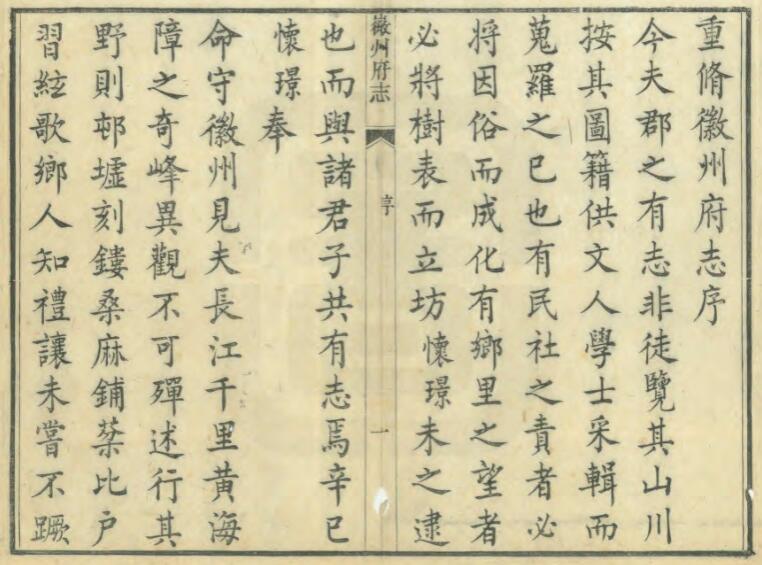 重脩徽州府志序
今夫郡之有志非徒覽其山川
按其圖籍供文人學士采輯而
蒐羅之已也有民社之責者必
將因俗而成化有鄉里之望者
必將樹表而立坊懷璟未之逮
徽州府志
序
一
也而與諸君子共有志焉辛巳
懷璟奉
命守徽州見夫長江千里黃海
障之奇峰異觀不可殫述行其
野則邨墟刻鏤桑麻鋪棻比戶
習絃歌鄉人知禮讓未嘗不蹶